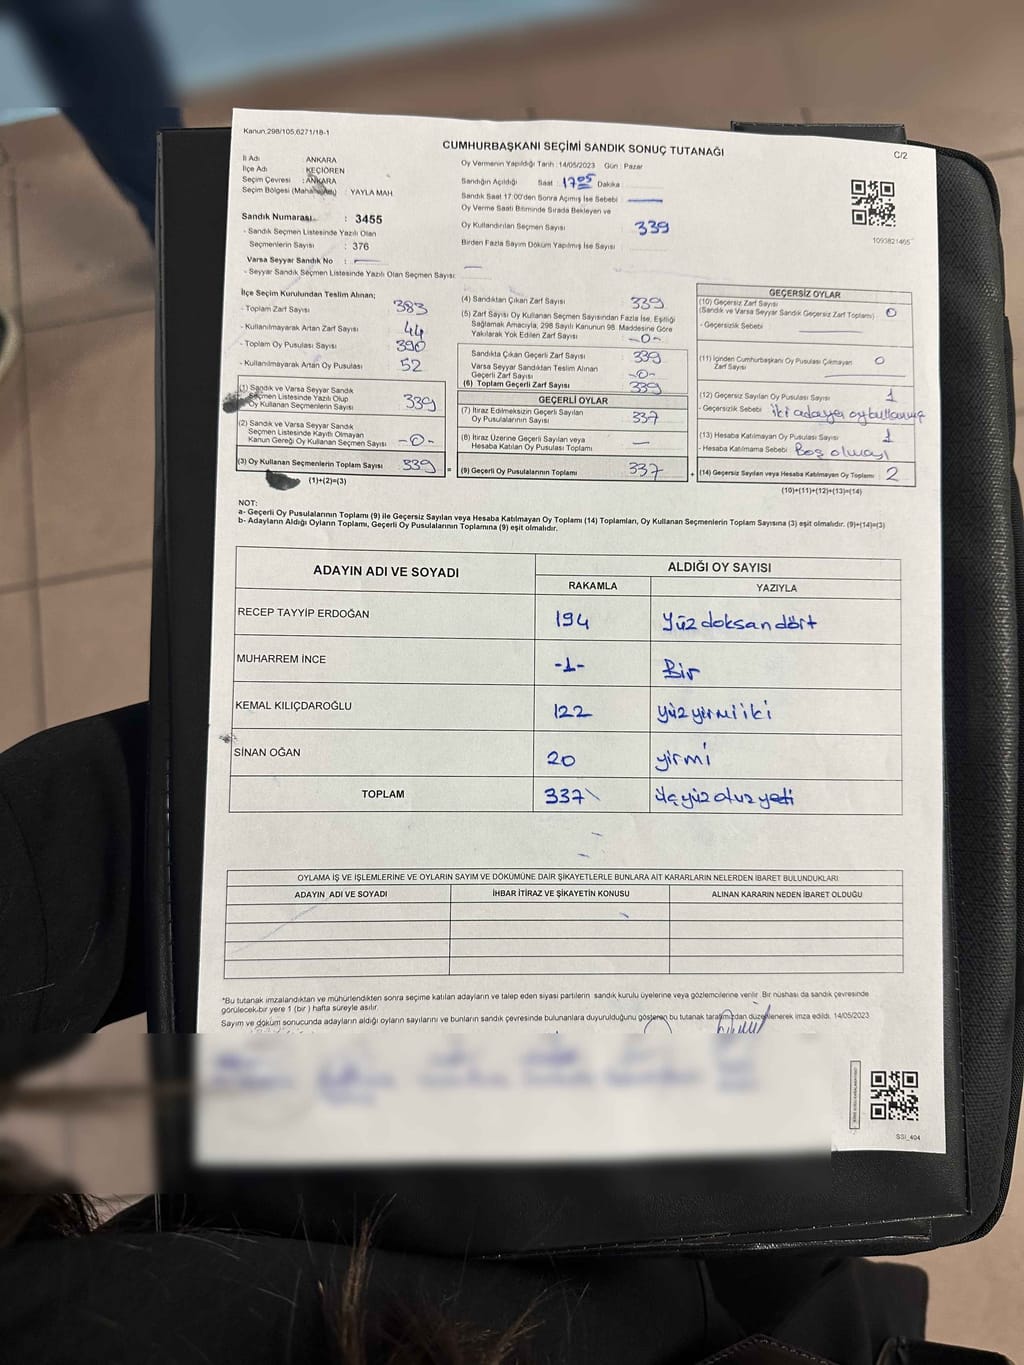 Kanun,298/105,6271/18-1
CUMHURBAŞKANI SEÇİMİ SANDIK SONUÇ TUTANAĞI
C/2
İl Adı : ANKARA
İlçe Adı : KEÇİÖREN
Seçim Çevresi : ANKARA
Seçim Bölgesi : YAYLA MAH.
Sandık Numarası : 3455
- Sandık Seçmen Listesinde Yazılı Olan
Seçmenlerin Sayısı : 376
Varsa Seyyar Sandık No :
- Seyyar Sandık Seçmen Listesinde Yazılı Olan Seçmen Sayısı:
Oy Vermenin Yapıldığı Tarih : 14/05/2023 Gün : Pazar
Sandığın Açıldığı Saat : 17 05 Dakika
Sandık Saat 17:00'den Sonra Açımış İse Sebebi
Oy Verme Saati Bitiminde Sırada Bekleyen ve
Oy Kullandırılan Seçmen Sayısı 339
Birden Fazla Sayım Döküm Yapılmış İse Sayısı
1093821465
İlçe Seçim Kurulundan Teslim Alınan;
- Toplam Zarf Sayısı 383
- Kullanılmayarak Artan Zarf Sayısı 44
- Toplam Oy Pusulası Sayısı 390
- Kullanılmayarak Artan Oy Pusulası 52
(1) Sandık ve Varsa Seyyar Sandık
Seçmen Listesinde Yazılı Olup
Oy Kullanan Seçmenlerin Sayısı 339
(2) Sandık ve Varsa Seyyar Sandık
Seçmen Listesinde Kayıtlı Olmayan
Kanun Gereği Oy Kullanan Seçmen Sayısı -0-
(3) Oy Kullanan Seçmenlerin Toplam Sayısı 339 =
(1)+(2)=(3)
(4) Sandıktan Çıkan Zarf Sayısı 339
(5) Zarf Sayısı Oy Kullanan Seçmen Sayısından Fazla İse, Eşitliği
Sağlamak Amacıyla, 298 Sayılı Kanunun 98. Maddesine Göre
Yakılarak Yok Edilen Zarf Sayısı -0-
Sandıkta Çıkan Geçerli Zarf Sayısı 339
Varsa Seyyar Sandıktan Teslim Alınan
Geçerli Zarf Sayısı -0-
(6) Toplam Geçerli Zarf Sayısı 339
GEÇERLİ OYLAR
(7) İtiraz Edilmeksizin Geçerli Sayılan
Oy Pusulalarının Sayısı 337
(8) İtiraz Üzerine Geçerli Sayılan veya
Hesaba Katılan Oy Pusulası Toplamı —
(9) Geçerli Oy Pusulalarının Toplamı 337 +
GEÇERSİZ OYLAR
(10) Geçersiz Zarf Sayısı
(Sandık ve Varsa Seyyar Sandık Geçersiz Zarf Toplamı) 0
- Geçersizlik Sebebi
(11) İçinden Cumhurbaşkanı Oy Pusulası Çıkmayan
Zarf Sayısı 0
(12) Geçersiz Sayılan Oy Pusulası Sayısı 1
- Geçersizlik Sebebi : iki adaya oy
(13) Hesaba Katılmayan Oy Pusulası Sayısı 1
- Hesaba Katılmama Sebebi : Boş
(14) Geçersiz Sayılan veya Hesaba Katılmayan Oy Toplamı 2
(10)+(11)+(12)+(13)=(14)
NOT:
a- Geçerli Oy Pusulalarının Toplamı (9) ile Geçersiz Sayılan veya Hesaba Katılmayan Oy Toplamı (14) Toplamları, Oy Kullanan Seçmenlerin Toplam Sayısına (3) eşit olmalıdır. (9)+(14)=(3)
b- Adayların Aldığı Oyların Toplamı, Geçerli Oy Pusulalarının Toplamına (9) eşit olmalıdır.
ADAYIN ADI VE SOYADI
ALDIĞI OY SAYISI
RAKAMLA YAZIYLA
RECEP TAYYİP ERDOĞAN 194 Yüz doksan dört
MUHARREM İNCE -1- Bir
KEMAL KILIÇDAROĞLU 122 yüz yirmi iki
SİNAN OĞAN 20 yirmi
TOPLAM 337 üç yüz otuz yedi
OYLAMA İŞ VE İŞLEMLERİNE VE OYLARIN SAYIM VE DÖKÜMÜNE DAİR ŞİKAYETLERLE BUNLARA AİT KARARLARIN NELERDEN İBARET BULUNDUKLARI
ADAYIN ADI VE SOYADI İHBAR İTİRAZ VE ŞİKAYETİN KONUSU ALINAN KARARIN NEDEN İBARET OLDUĞU
*Bu tutanak imzalandıktan ve mühürlendikten sonra seçime katılan adayların ve talep eden siyasi partilerin sandık kurulu üyelerine veya gözlemcilerine verilir. Bir nüshası da sandık çevresinde
görülecek bir yere 1 (bir) hafta süreyle asılır.
Sayım ve döküm sonucunda adayların aldığı oyların sayılarını ve bunların sandık çevresinde bulunanlara duyurulduğunu gösteren bu tutanak tarafımızdan düzenlenerek imza edildi. 14/05/2023
SSI_404